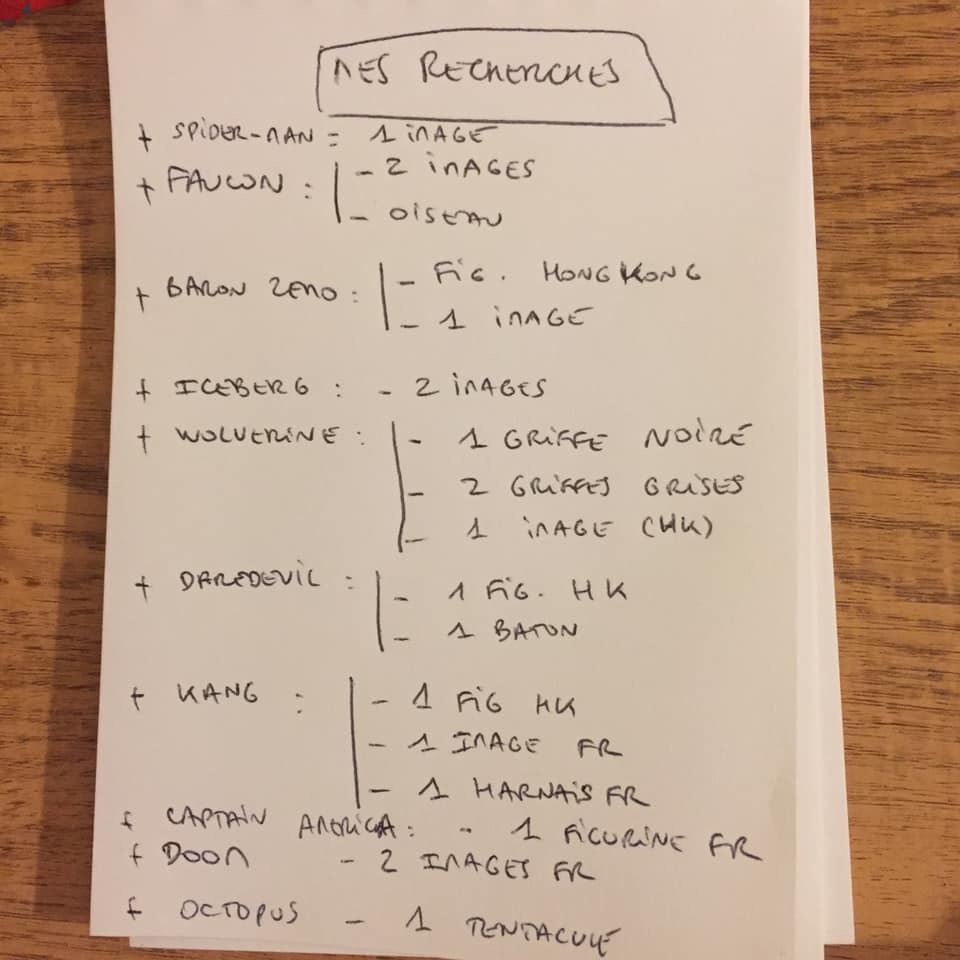 MES RECHERCHES
+ SPiDER-MAN = 1 iMAGE
+ FAUCON : - 2 iMAGES
- OiSEAU
+ BARON ZEMO : - FiG. HONG KONG
- 1 iMAGE
+ ICEBERG : - 2 iMAGES
+ WOLVERiNE : - 1 GRiFFE NOiRE
- 2 GRiFFES GRiSES
- 1 iMAGE (HK)
+ DAREDEViL : - 1 FiG. HK
- 1 BATON
+ KANG : - 1 FiG HK
- 1 IMAGE FR
- 1 HARNAiS FR
+ CAPTAiN AMERiCA : - 1 FiGURiNE FR
+ DOOM - 2 IMAGES FR
+ OCTOPUS - 1 TENTACULE